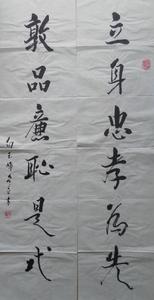 立身忠孝为先
敦品廉恥是式